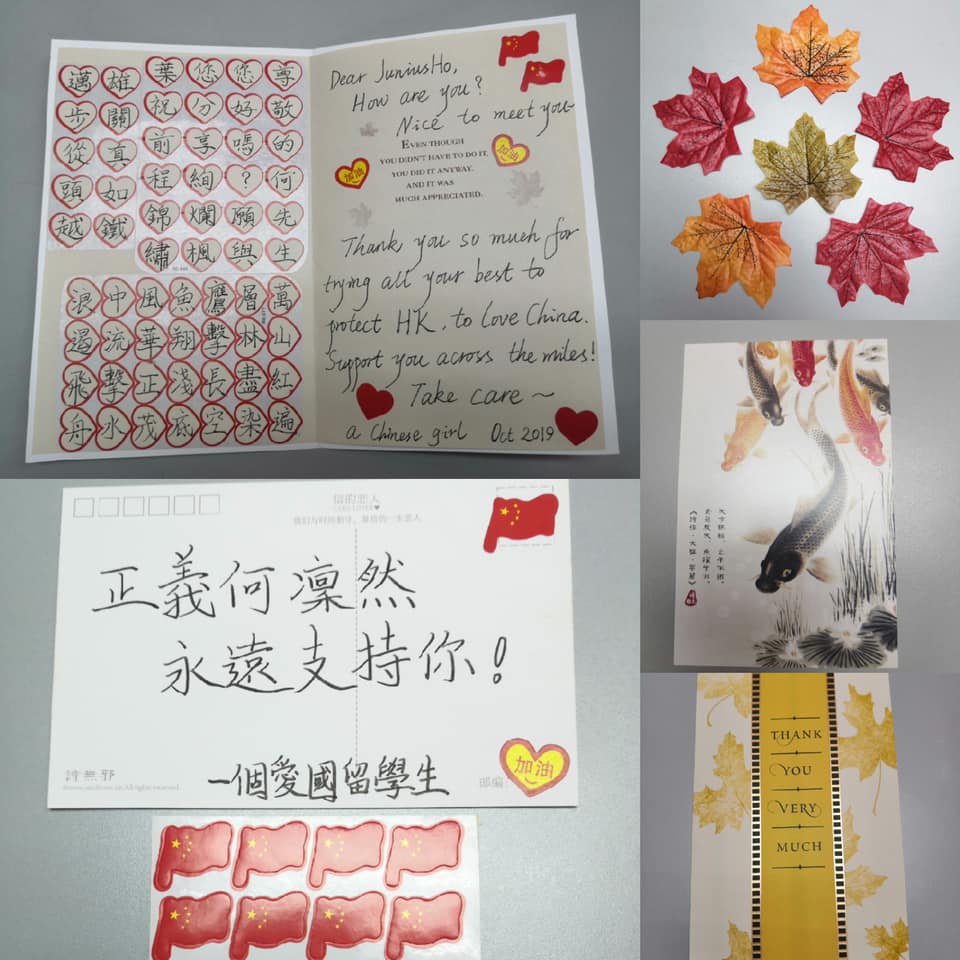 尊敬的何先生
您好嗎？願與
您分享絢爛楓
葉祝前程錦繡
雄關真如鐵
邁步從頭越
萬山紅遍
層林盡染
鷹擊長空
魚翔淺底
風華正茂
中流擊水
浪遏飛舟
Dear JuniusHo,
How are you?
Nice to meet you
EVEN THOUGH
YOU DIDN'T HAVE TO DO IT,
YOU DID IT ANYWAY.
AND IT WAS
MUCH APPRECIATED.
加油
加油
Thank you so much for
trying all your best to
protect HK, to love China.
Support you across the miles!
Take care ~
a Chinese girl Oct 2019
信的恋人
正義何凜然
永遠支持你！
一個愛國留學生
詩無邪
邮编
加油
《诗经·大雅·旱麓》
THANK
YOU
VERY
MUCH